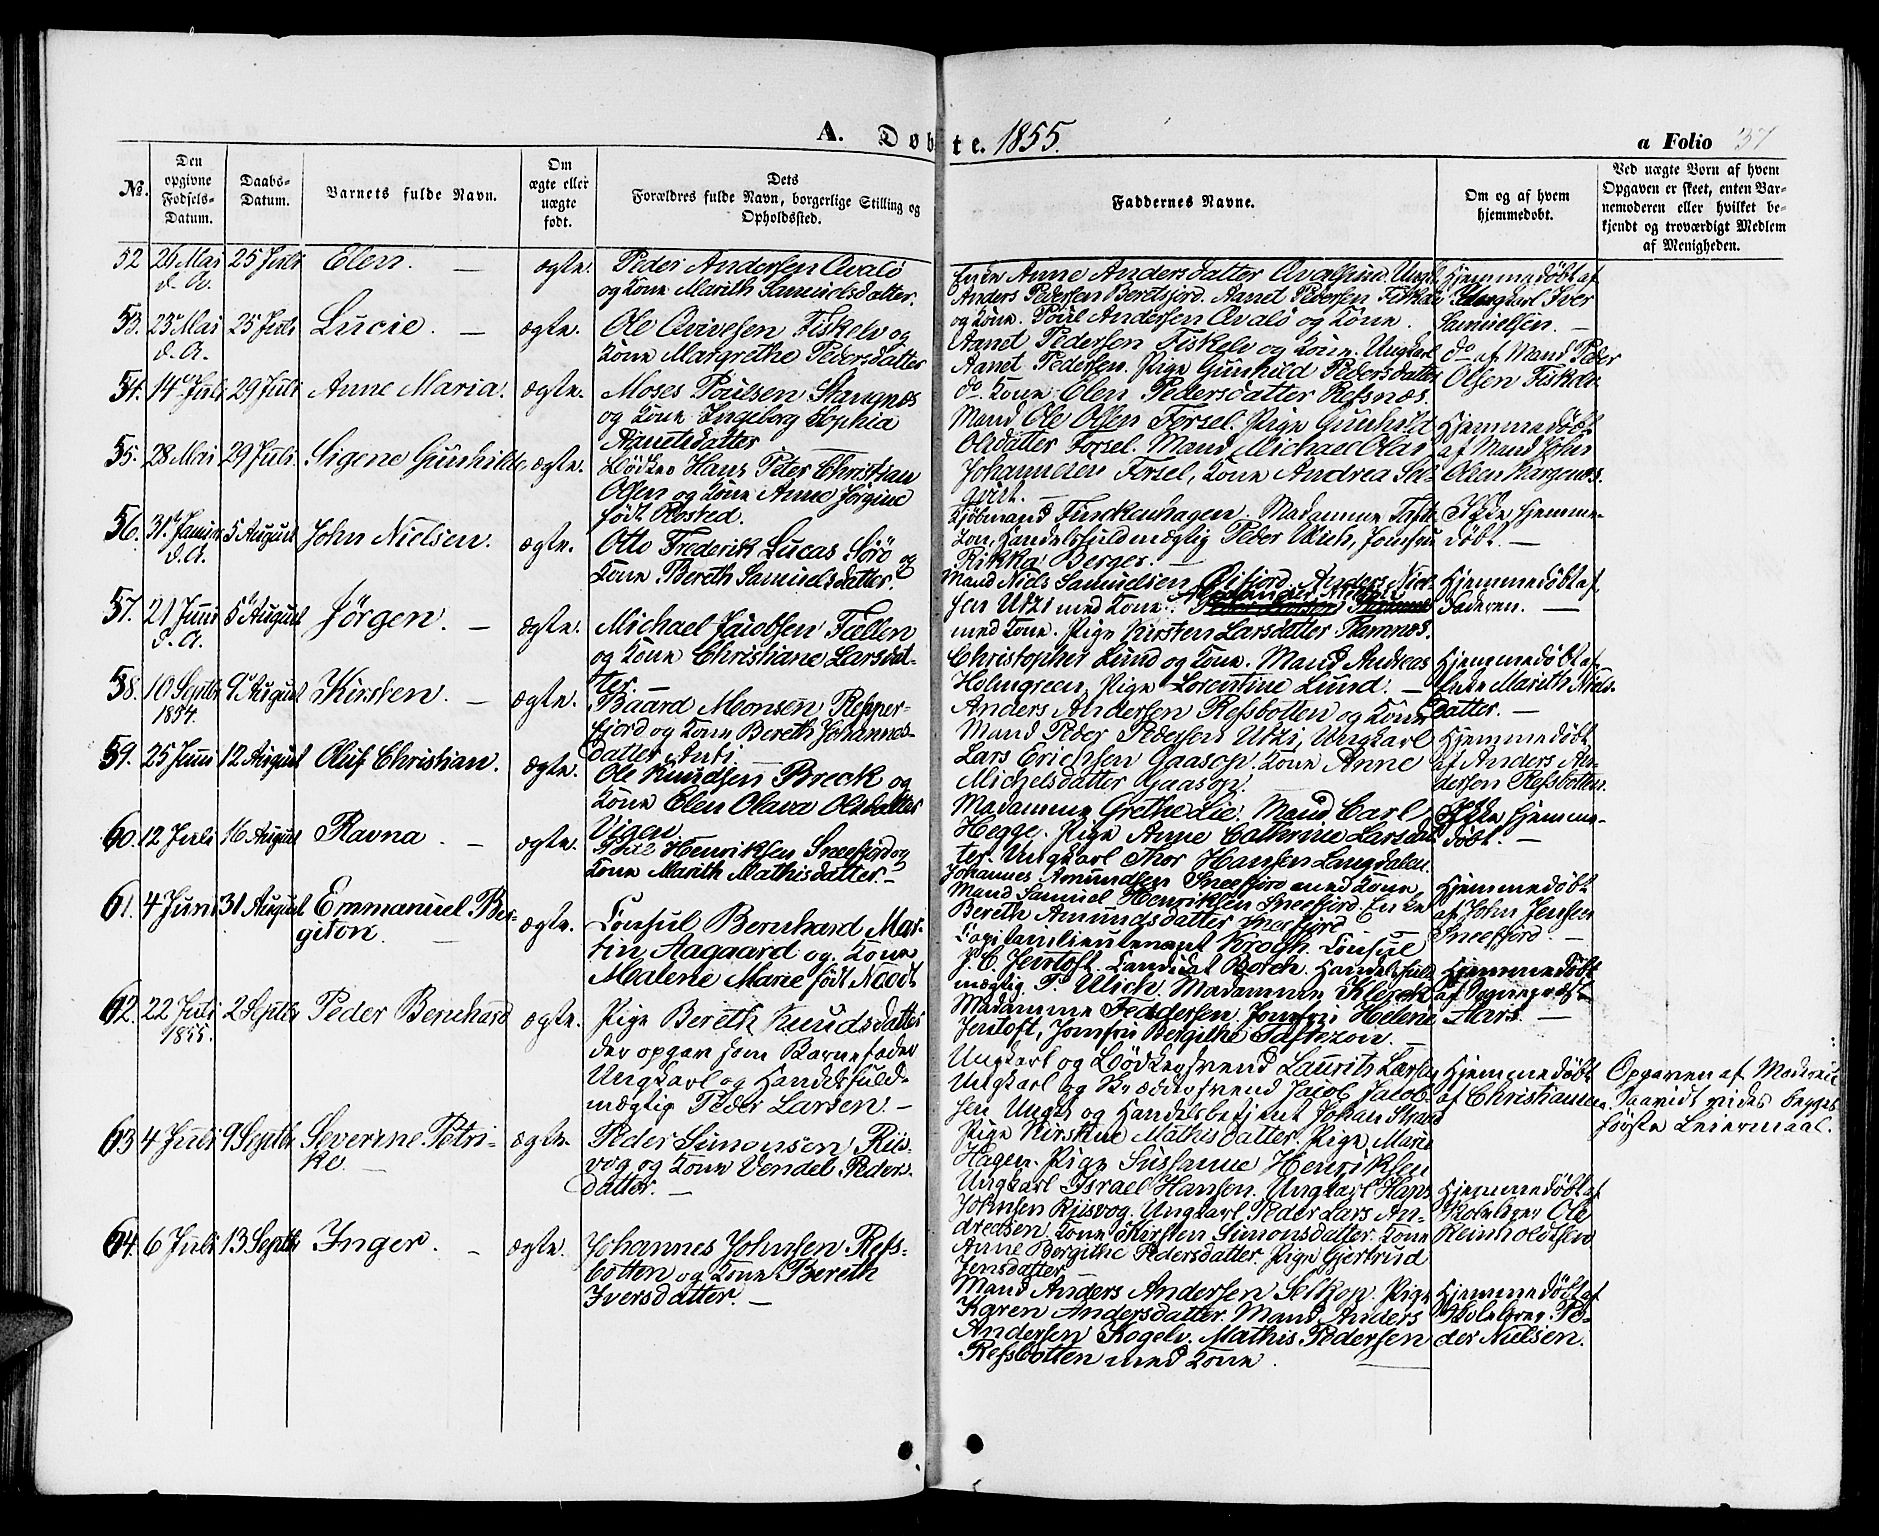 A. Døbte. 1855.
a Folio 37
No.
Den opgivne Fødsels-Datum.
Daabs-Datum.
Barnets fulde Navn.
Om ægte eller uægte født.
Dets Forældres fulde Navn, borgerlige Stilling og Opholdssted.
Faddernes Navne.
Om og af hvem hjemmedøbt.
Ved uægte Børn af hvem Opgaven er skeet, enten Barnemoderen eller hvilket bekjendt og troværdigt Medlem af Menigheden.
52 26 Mai d. A. 25 Juli Elen. — ægte.
Peder Andersen Qvalø
og Kone Marith Samuelsdatter.
Enke Anne Andersdatter Qvalsund. Ungk.
Anders Pedersen Beretsjord. Aanet Pedersen Fiskelv
og Kone. Poul Andersen Qvalø og Kone.
Hjemmedøbt af
Ungkarl Iver
Samuelsen. —
53. 23 Mai d. A. 25 Juli Lucie. — ægte.
Ole Qvivesen Fiskelv og
Kone Margrethe Pedersdatter
Aanet Pedersen Fiskelv og Kone. Ungkarl
Aanet Pedersen. Pige Gunhild Pedersdatter
do Kone Elen Pedersdatter Refsnæs.
do af Mand Peder
Olsen Fiskelv.
54. 14 Juli 29 Juli Anne Maria. ægte.
Moses Poulsen Stangnæs
og Kone Ingeborg Sophia
Aanetsdatter
Mand Ole Olsen Forsøl. Pige Gunhild
Olsdatter Forsøl. Mand Michael Olai
Johannesen Forsøl, Kone Andrea
Hjemmedøbt
af Mand John
Olsen
55. 28 Mai 29 Juli. Signe Gunhilde ægte.
Bødker Hans Peter Christian
Olsen og Kone Anne Jørgine
født Rosted.
Kjøbmand Finckenhagen. Madamme
Handelsfuldmægtig Peder Ulich, Jomfru
Rikka Berger. —
Ikke hjemme-
døbt. —
56. 31 Januar d. A. 5 August John Nielsen. ægte.
Otto Frederik Lucas Sørø og
Kone Bereth Samuelsdatter.
Mand Niels Samuelsen Øifjord. Anders Niel-
sen Utzi med Kone.
med Kone. Pige Kirsten Larsdatter Ramnæs.
Hjemmedøbt af
Faderen. —
57. 21 Juni d. A. 5 August Jørgen. — ægte.
Michael Jacobsen Fallen
og Kone Christiane Larsdat-
ter.
Christopher Lund og Kone. Mand Andreas
Holmgreen, Pige Lorentine Lund. —
Hjemmedøbt af
Enke Marith Niels-
datter. —
58. 10 Septbr 1854. 9 August Kirsten. — ægte.
Baard Monsen Repper-
fjord og Kone Bereth Johannes-
datter Anti. —
Anders Andersen Refsbotten og Kone
Mand Peder Pedersen Utzi, Ungkarl
Lars Erichsen Gaasop. Kone Anne
Michelsdatter Gaasop.
Hjemmedøbt
af Anders An-
dersen Refsbotten.
59. 25 Juni 12 August Oluf Christian. ægte.
Ole Knudsen Breck og
Kone Elen Olava Olsdatter
Vigen.
Madamme Grethe Lie. Mand Carl
Hegge. Pige Anne Cathrine Larsdat-
ter. Ungkarl Thor Hansen Langdalen.
Ikke hjemme-
døbt. —
60. 12 Juli 16 August Ravna. — ægte.
Henriksen Sneefjord og
Kone Marith Mathisdatter. —
Johannes Amundsen Sneefjord med Kone,
Mand Samuel Henriksen Sneefjord. Enke
Bereth Amundsdatter Sneefjord
Hjemmedøbt
af John Jensen
Sneefjord. —
61. 4 Juni 31 August Emmanuel Ber-
giton. — ægte.
Consul Bernhard Mar-
tin Aagaard og Kone
Malene Marie født Noodt
Capitainlieutenant Krogh. Consul
J. C. Jentoft. Candidat Borch. Handelsfuld-
mægtig P Ulich, Madamme Klerck
Madamme Feddersen. Jomfru Helene
Jentoft, Jomfru Bergithe Taftezon.
Hjemmedøbt
af Sognepræst
Aars. —
62. 22 Juli 1855. 2 Septbr Peder Bernhard ægte.
Pige Bereth Knudsdatter
der opgav som Barnefader
Ungkarl og Handelsfuld-
mægtig Peder Larsen. —
Ungkarl og Bødkersvend Laurits Larsen
Ungkarl og Bræddersvend Jacob Jacob-
sen, Ungk. og Handelsbetjent Johan Strand
Pige Kirstine Mathisdatter. Pige Marie
Hagen. Pige Susanne Henriksen
Hjemmedøbt
af Christiansen
Opgaven af Moderen
Saavidt vides begges
første Leiermaal.
63 4 Juli 9 Septbr. Severine Petri-
ke. — ægte.
Peder Simonsen Riis-
vog og Kone Vendel Peders-
datter. —
Ungkarl Israel Hansen. Ungkarl Hans
Johnsen Riisvog. Ungkarl Peder Lars An-
dreasen. Kone Kirsten Simonsdatter. Kone
Anne Bergithe Pedersdatter. Pige Gjertrud
Jensdatter
Hjemmedøbt af
Skolelærer Ole
Reinholdtsen
64. 6 Juli 13 Septbr Inger. — ægte.
Johannes Johnsen Refs-
botten og Kone Bereth
Iversdatter. —
Mand Anders Andersen Selkop. Pige
Karen Andersdatter. Mand Anders
Andersen Kogelv. Mathis Pedersen
Refsbotten med Kone.
Hjemmedøbt af
Skolelærer Pe-
der Nielsen.